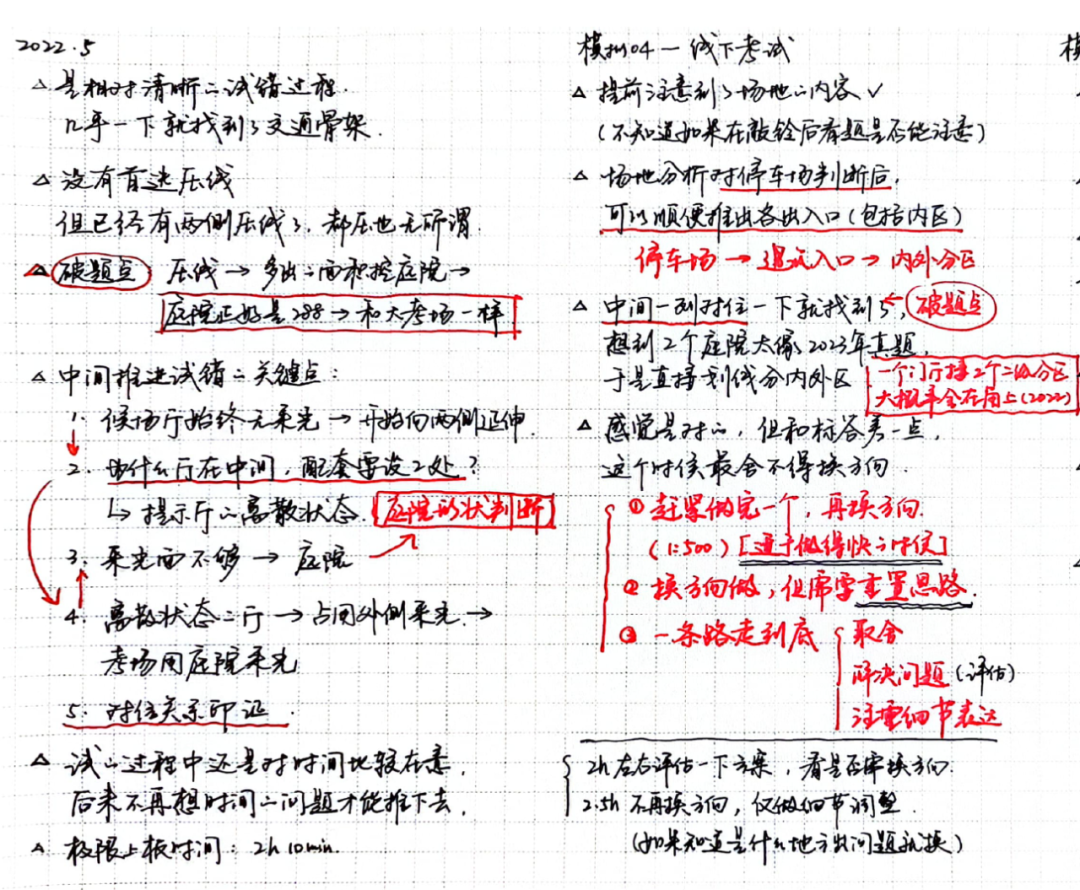 2022.5
△ 是相对清晰的试错过程.
几乎一下就找到了交通骨架.
△ 没有首选压线
但已经有两侧压线了, 都压也无所谓.
△ 破题点 压线 → 多出的面积挖庭院 →
庭院正好是288 → 和大考场一样
△ 中间推进试错的关键点:
1. 候场厅始终无采光 → 开始向两侧延伸.
2. 为什么厅在中间, 配套要设2处?
↳ 提示厅的离散状态. 庭院形状判断
3. 采光面不够 → 庭院
4. 离散状态的厅 → 占用外侧采光 →
考场用庭院采光
5. 对位关系印证.
△ 试的过程中还是对时间比较在意,
后来不再想时间的问题才能推下去.
△ 极限上板时间: 2h 10min.
模拟04 — 线下考试
△ 提前注意到了场地的内容 ✓
(不知道如果在敲铃后看题是否能注意)
△ 场地分析对停车场判断后,
可以顺便推出各出入口(包括内区)
停车场 → 退沉入口 → 内外分区
△ 中间一列对位一下就找到了, 破题点
想到2个庭院太像2023年真题,
于是直接划线分内外区
一个门厅接2个二级分区
大概率会在角上(2022)
△ 感觉是对的, 但和标答差一点,
这个时候最舍不得换方向.
① 赶紧做完一个, 再换方向.
(1:500) [适于做得快的时候]
② 换方向做, 但需要重置思路.
③ 一条路走到底
取舍
解决问题 (评估)
注重细节表达
2h左右评估一下方案, 看是否需换方向.
2.5h 不再换方向, 仅做细节调整.
(如果知道是什么地方出问题就换)
模